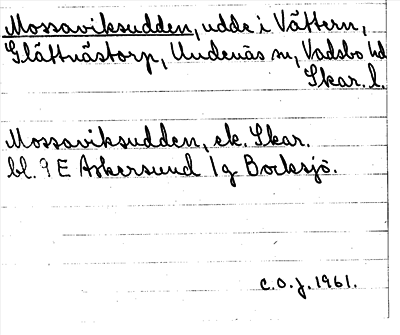 Mossaviksudden, udde i Vättern,
Slättnästorp, Undenäs sn, Vadsbo hd
Skar. l.
Mossaviksudden, ek. Skar.
bl. 9 E Askersund 1g Bocksjö.
C.O.J. 1961.